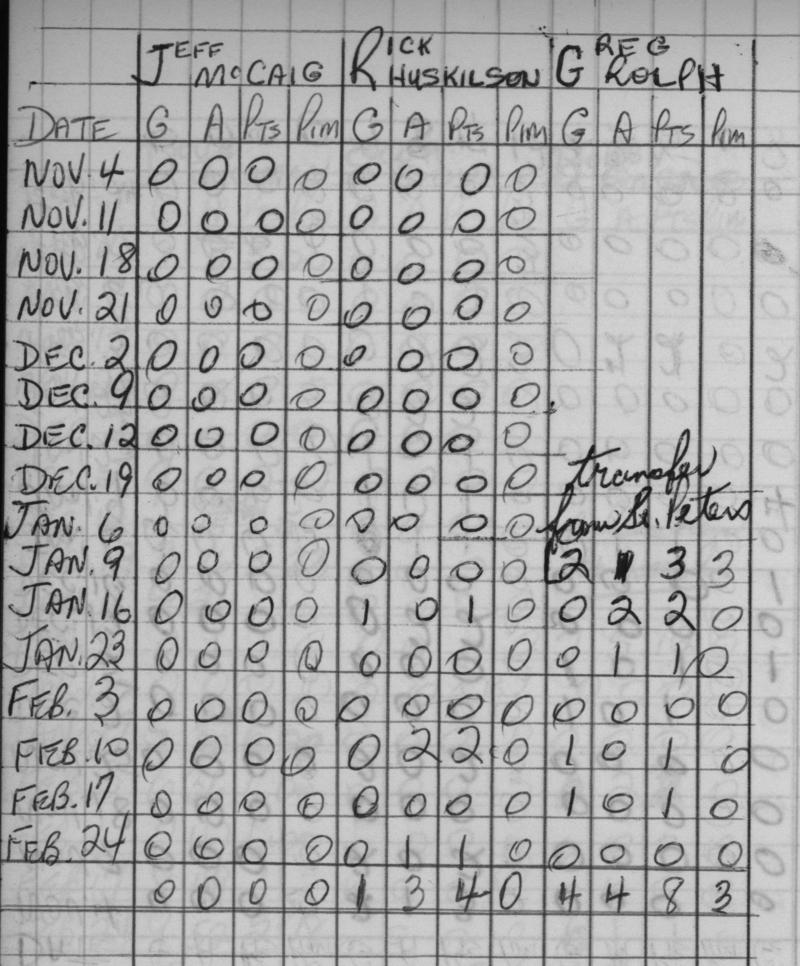 JEFF McCAIG RICK HUSKILSON GREG ROLPH
DATE G A PTS PIM G A PTS PIM G A PTS PIM
NOV. 4 0 0 0 0 0 0 0 0
NOV. 11 0 0 0 0 0 0 0 0
NOV. 18 0 0 0 0 0 0 0 0
NOV. 21 0 0 0 0 0 0 0 0
DEC. 2 0 0 0 0 0 0 0 0
DEC. 9 0 0 0 0 0 0 0 0
DEC. 12 0 0 0 0 0 0 0 0
DEC. 19 0 0 0 0 0 0 0 0 transfer
JAN. 6 0 0 0 0 0 0 0 0 from St. Peters
JAN. 9 0 0 0 0 0 0 0 0 2 1 3 3
JAN. 16 0 0 0 0 1 0 1 0 0 2 2 0
JAN. 23 0 0 0 0 0 0 0 0 0 1 1 0
FEB. 3 0 0 0 0 0 0 0 0 0 0 0 0
FEB. 10 0 0 0 0 0 2 2 0 1 0 1 0
FEB. 17 0 0 0 0 0 0 0 0 1 0 1 0
FEB. 24 0 0 0 0 0 1 1 0 0 0 0 0
0 0 0 0 1 3 4 0 4 4 8 3